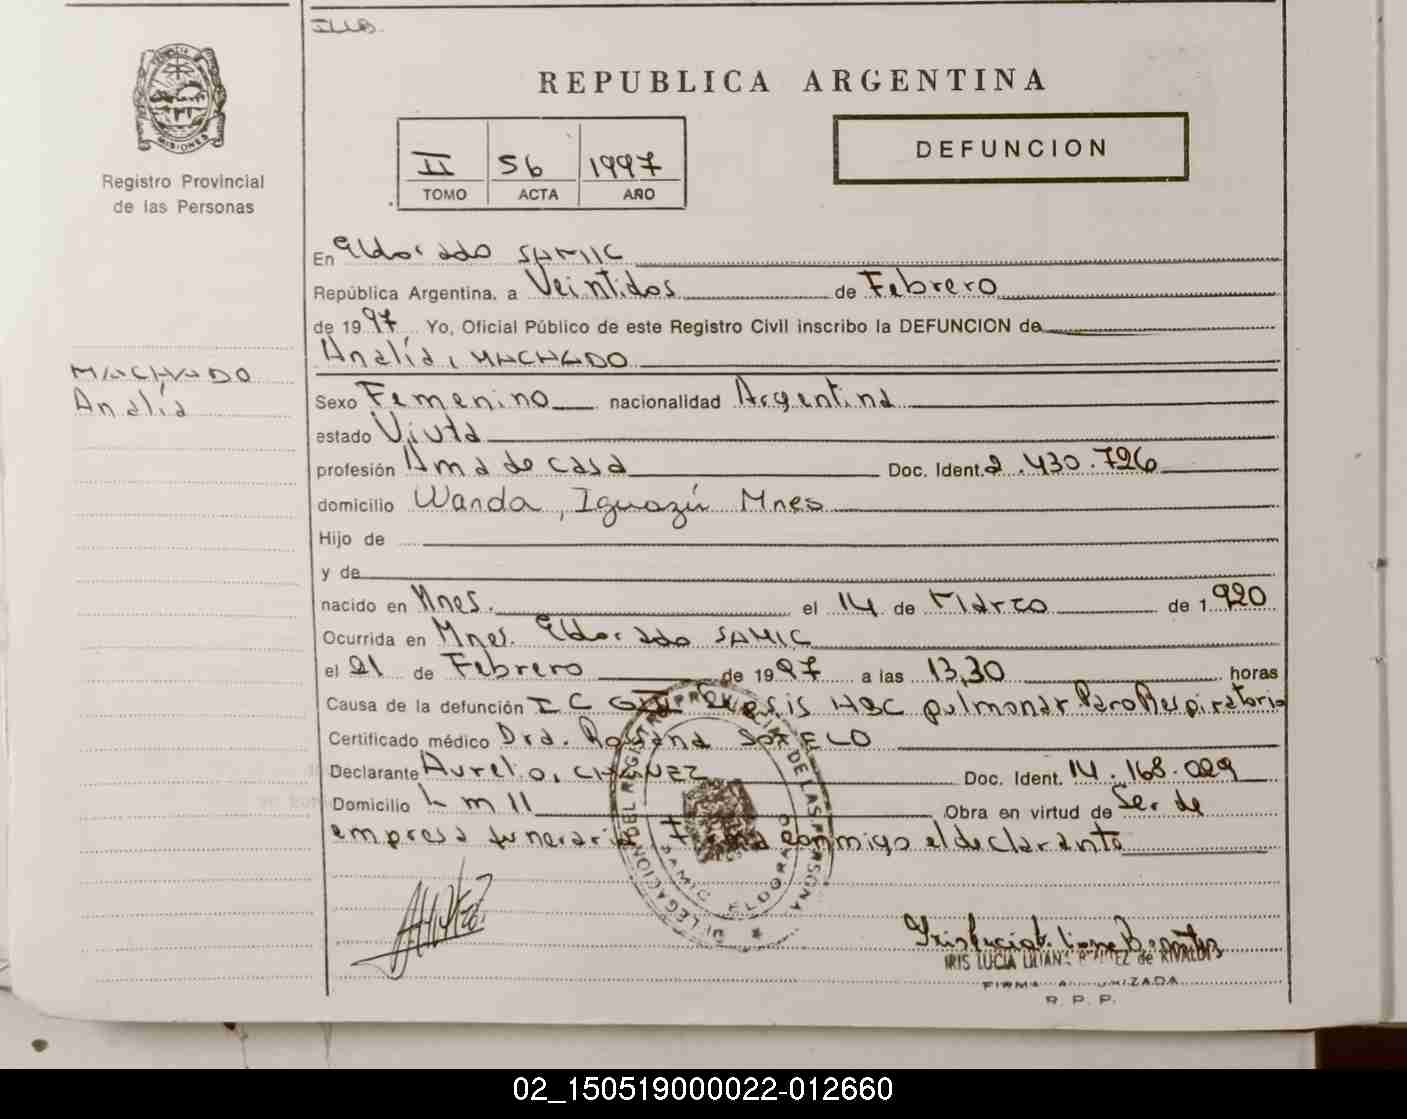 ILLB.
REPUBLICA ARGENTINA
MISIONES
Registro Provincial
de las Personas
II 56 1997
TOMO ACTA AÑO
DEFUNCION
En Eldorado SAMIC
República Argentina, a Veintidos de Febrero
de 1997 Yo, Oficial Público de este Registro Civil inscribo la DEFUNCION de
Analía, MACHADO
MACHADO
Analía
Sexo Femenino nacionalidad Argentina
estado Viuda
profesión Ama de casa Doc. Ident. 2.430.726
domicilio Wanda, Iguazú Mnes
Hijo de
y de
nacido en Mnes. el 14 de Marzo de 1920
Ocurrida en Mnes. Eldorado SAMIC
el 21 de Febrero de 1997 a las 13,30 horas
Causa de la defunción I C HBC pulmonar Paro Respiratorio
Certificado médico Dra. Rossana SOTELO
Declarante Aurelio, CHAVEZ Doc. Ident. 14.168.029
Domicilio km 11 Obra en virtud de Ser de
empresa funeraria Firma conmigo el declarante
DELEGACION DEL REGISTRO PROVINCIAL DE LAS PERSONAS
SAMIC ELDORADO
IRIS LUCIA LILIANA BENITEZ de RIVALDI
FIRMA AUTORIZADA
R. P. P.
02_150519000022-012660